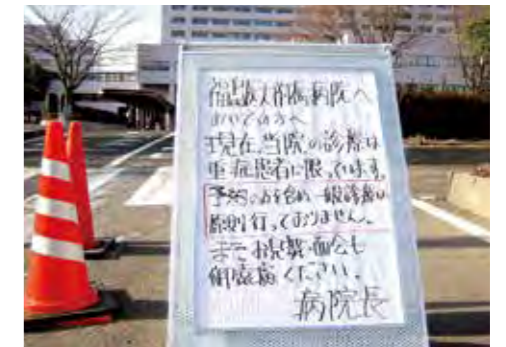 福島医大附属病院へ
おいでの方へ
現在、当院の診療は
重症患者に限っています。
予約の方を含め一般診療は
原則行っておりません。
また お見舞・面会も
御遠慮ください。
病院長